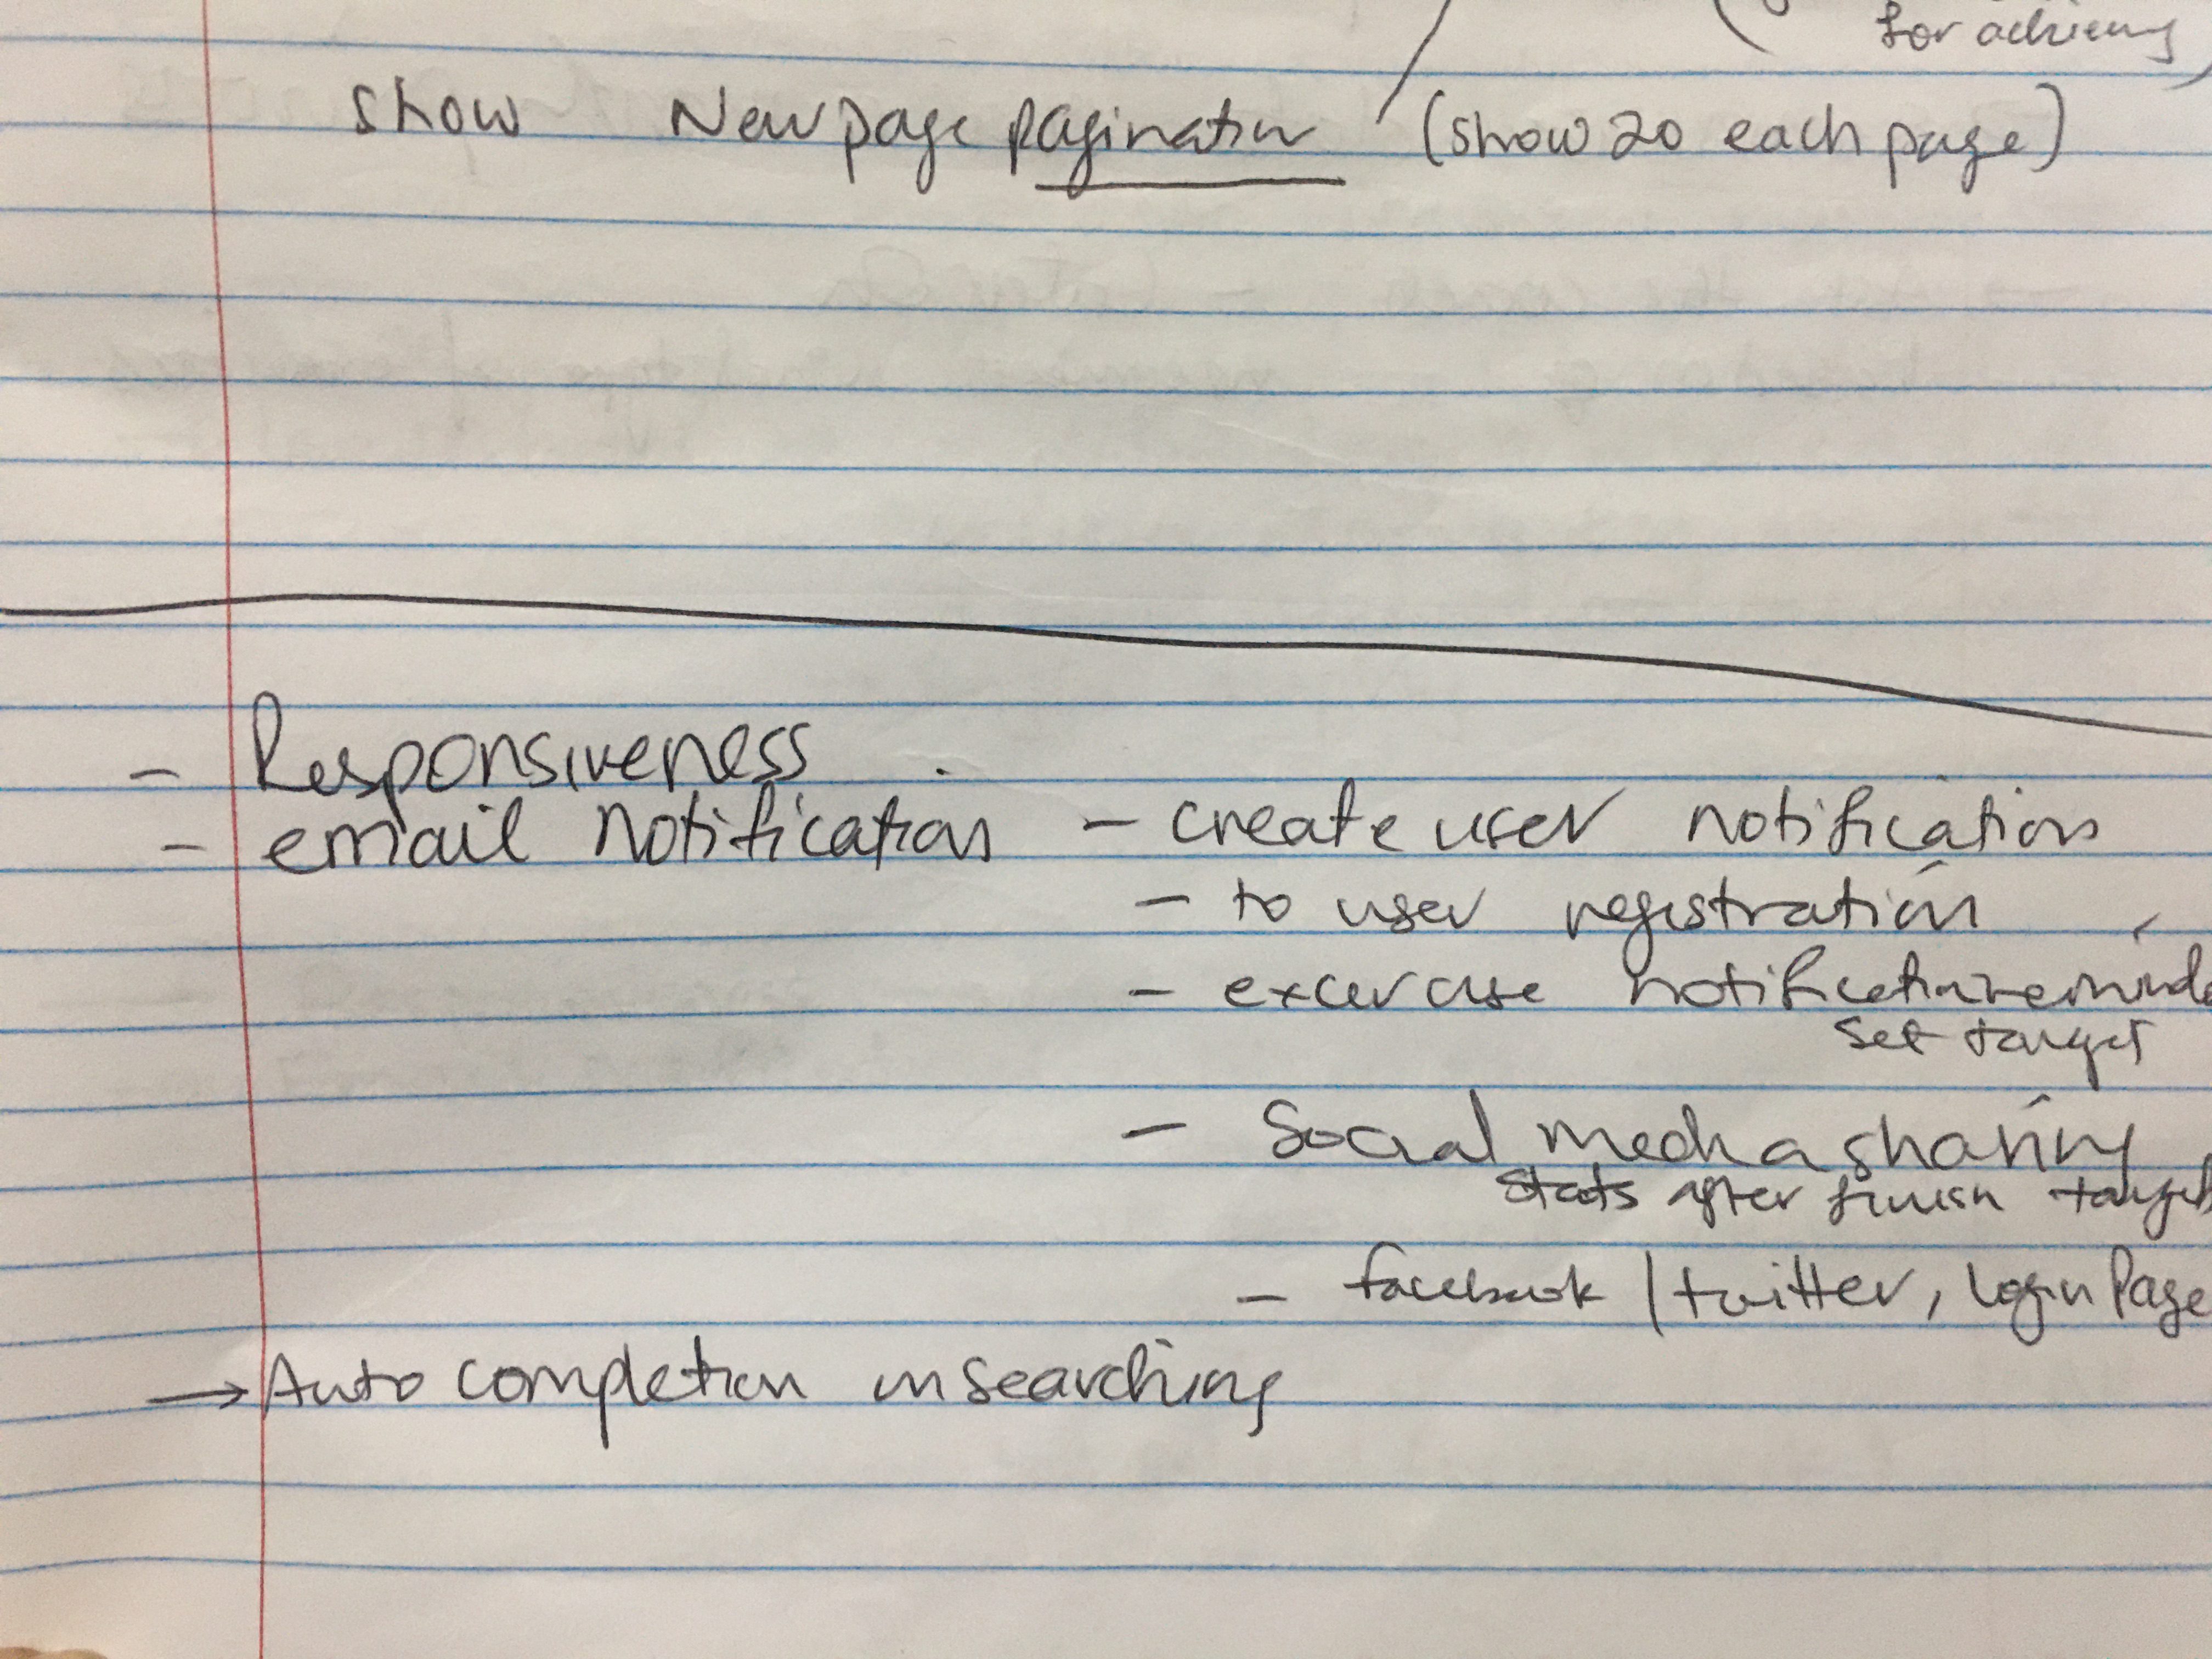 for achieving
show New page pagination (show 20 each page)
- Responsiveness
- email notification - create user notification
- to user registration
- excercise notification reminde
set target
- Social media sharing
stats after finish target
- facebook / twitter, login Page
→ Auto completion in searching